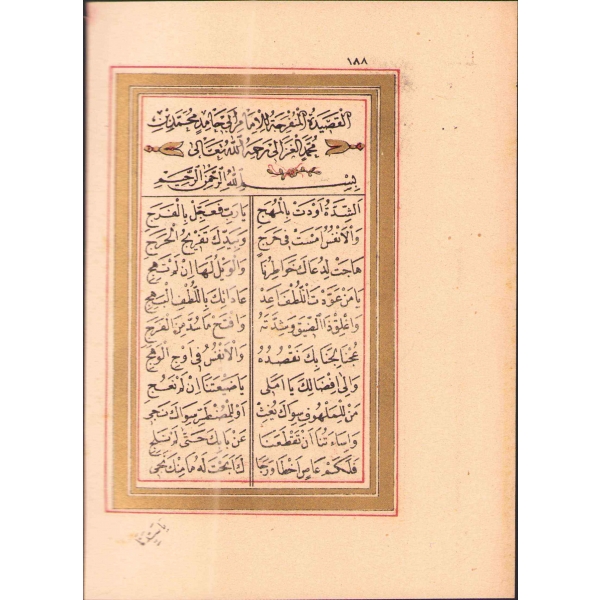 ١٨٨
القصيدة المنفرجة للامام ابي حامد محمد بن
محمد الغزالي رحمة الله تعالى
بسم الله الرحمن الرحيم
الشدة اودت بالمهج يا رب فعجل بالفرج
والانفس امست في حرج وبيدك تفريج الحرج
هاجت لدعاك خواطرنا والويل لها ان لم تهج
يا من عودت اللطف اعد عاداتك باللطف البهج
واغلق ذا الضيق وشدته وافتح ما سد من الفرج
عجنا لجنابك نقصده والانفس في اوج الوهج
والى افضالك يا املي يا ضيعتنا ان لم نعج
من للملهوف سواك يغث او للمضطر سواك نجي
واساءتنا ان تقطعنا عن بابك حتى لم نلج
فلكم عاص اخطا ورجا ك ابحت له ما منك نجي